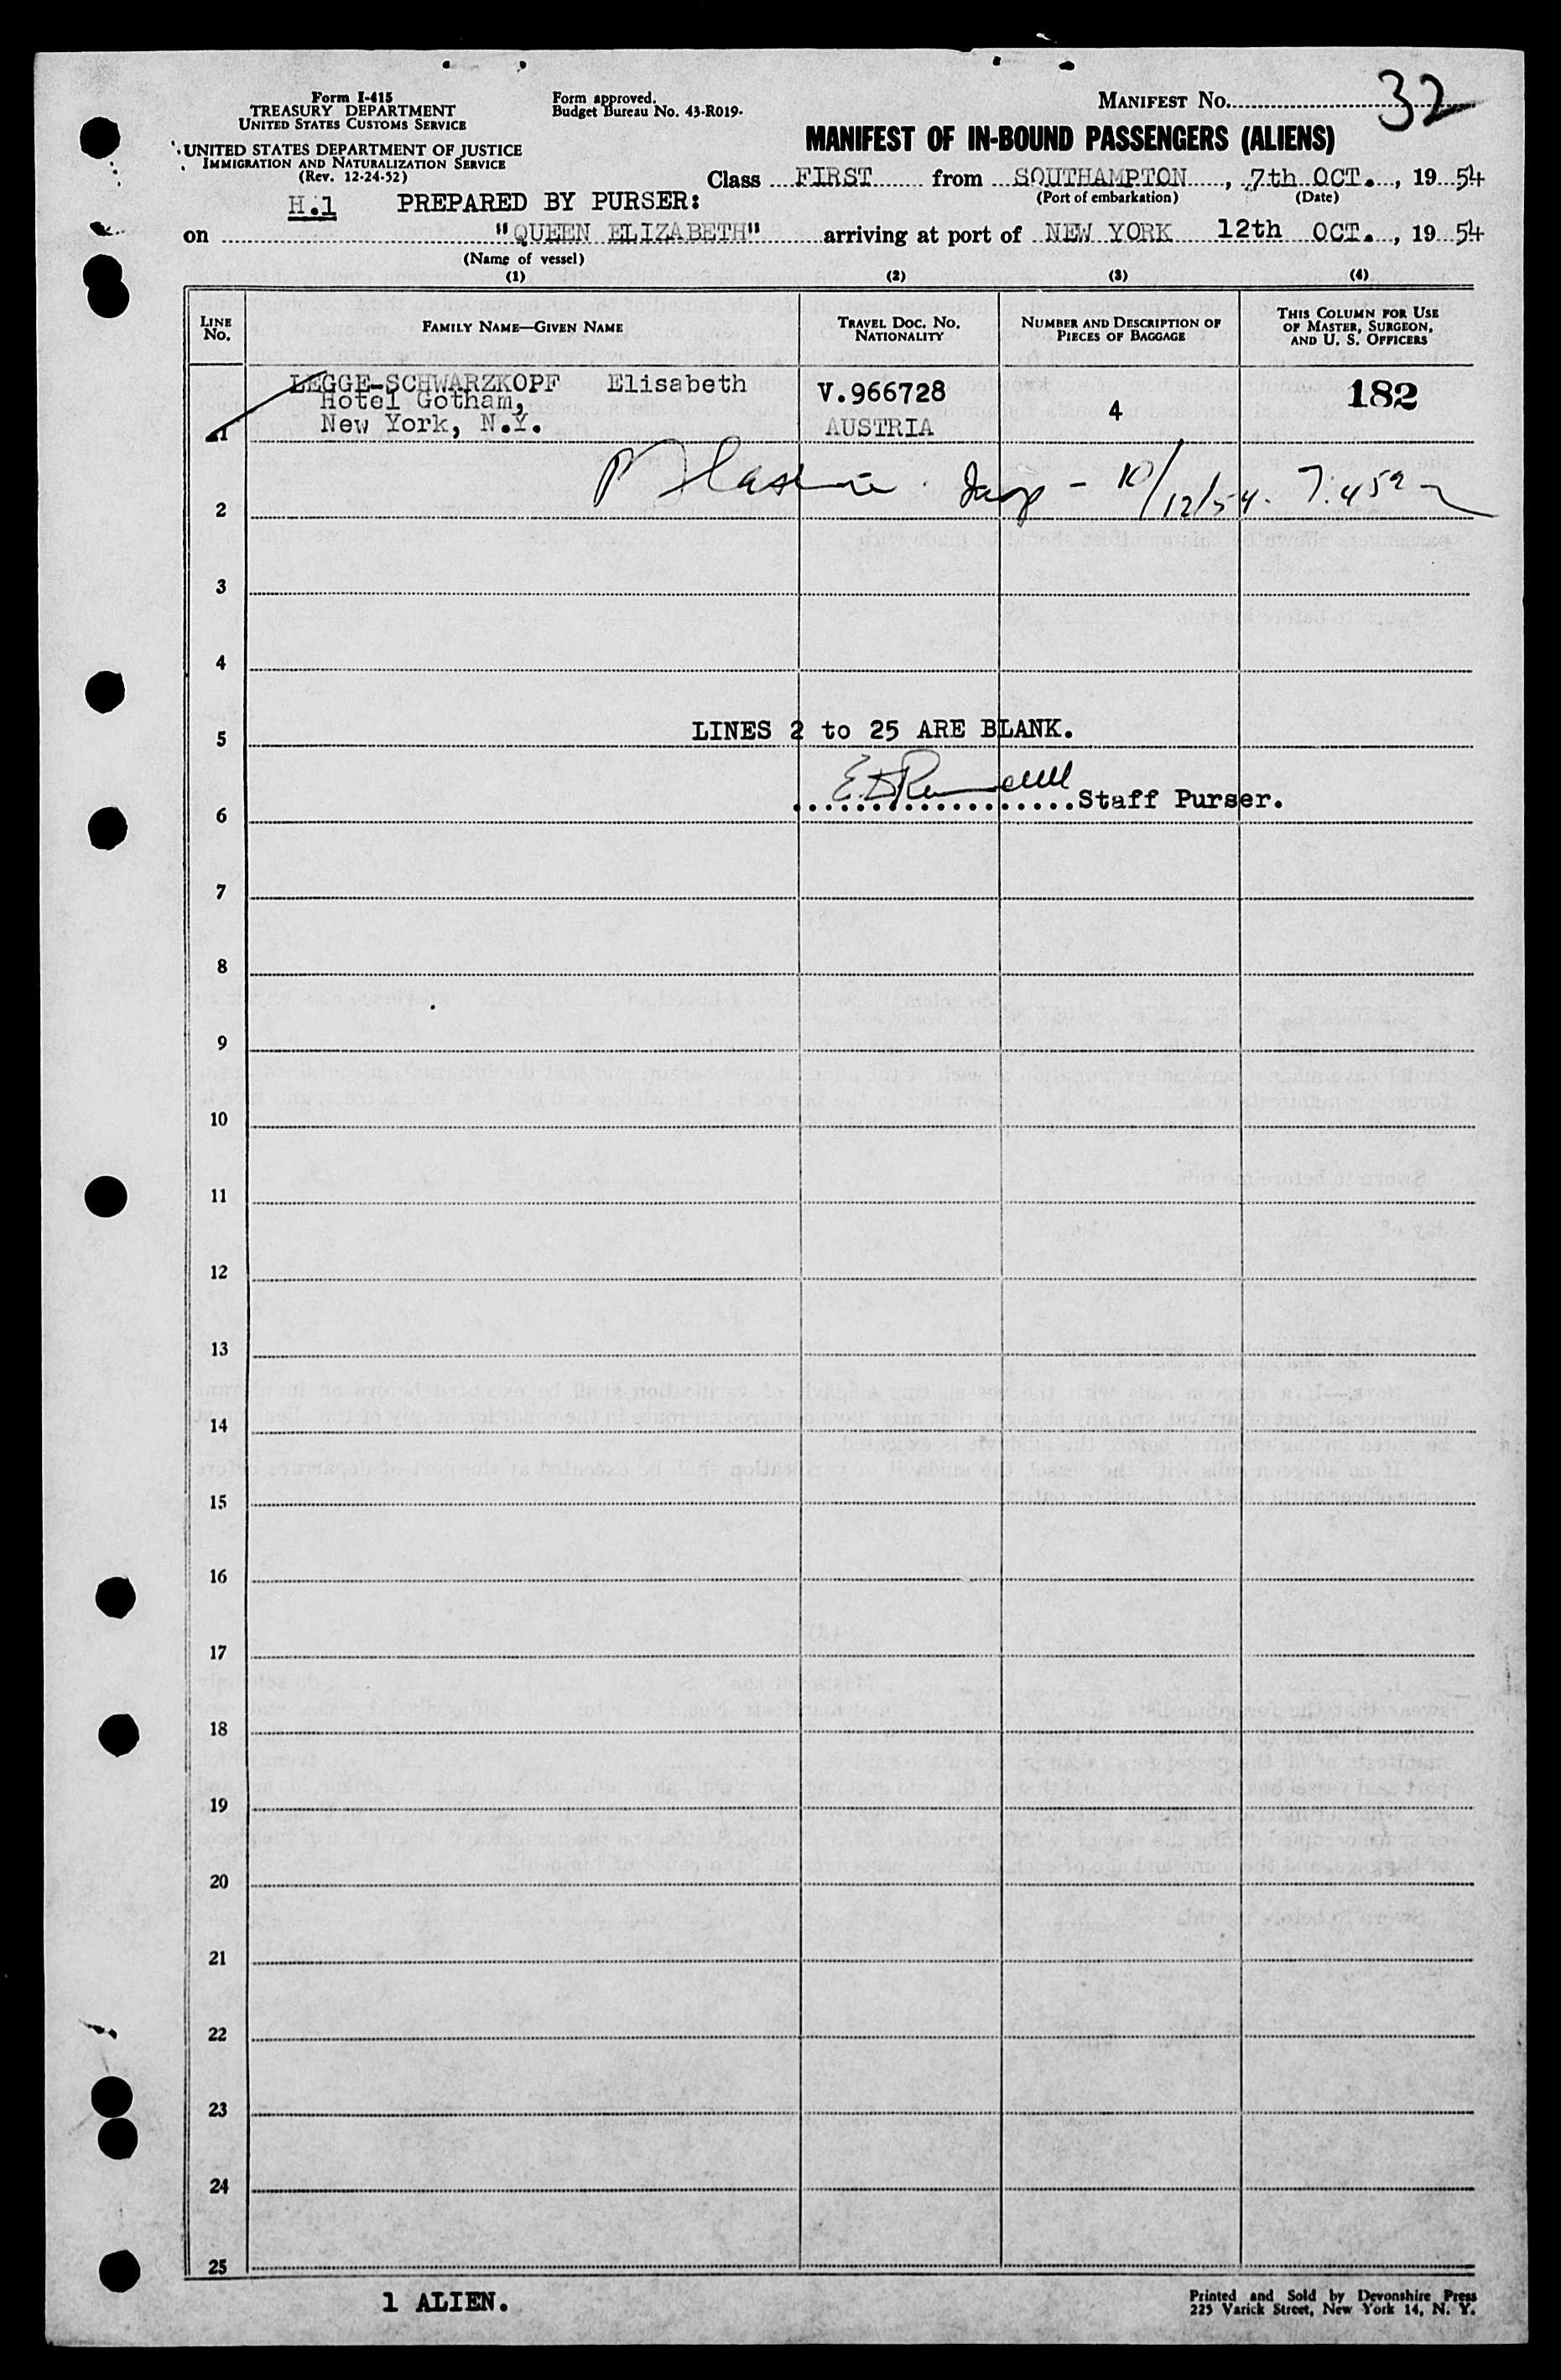 Form I-415
TREASURY DEPARTMENT
UNITED STATES CUSTOMS SERVICE
UNITED STATES DEPARTMENT OF JUSTICE
IMMIGRATION AND NATURALIZATION SERVICE
(Rev. 12-24-52)
Form approved.
Budget Bureau No. 43-R019-
MANIFEST No. 32
MANIFEST OF IN-BOUND PASSENGERS (ALIENS)
Class FIRST from SOUTHAMPTON, 7th OCT., 1954
(Port of embarkation) (Date)
H.1 PREPARED BY PURSER:
on "QUEEN ELIZABETH" arriving at port of NEW YORK 12th OCT., 1954
(Name of vessel)
(1) (2) (3) (4)
LINE No. FAMILY NAME—GIVEN NAME TRAVEL DOC. No. NATIONALITY NUMBER AND DESCRIPTION OF PIECES OF BAGGAGE THIS COLUMN FOR USE OF MASTER, SURGEON, AND U. S. OFFICERS
LEGGE-SCHWARZKOPF Elisabeth V.966728 4 182
Hotel Gotham,
1 New York, N.Y. AUSTRIA
10/12/54
2
3
4
LINES 2 to 25 ARE BLANK.
5
Staff Purser.
6
7
8
9
10
11
12
13
14
15
16
17
18
19
20
21
22
23
24
25
1 ALIEN.
Printed and Sold by Devonshire Press
225 Varick Street, New York 14, N. Y.